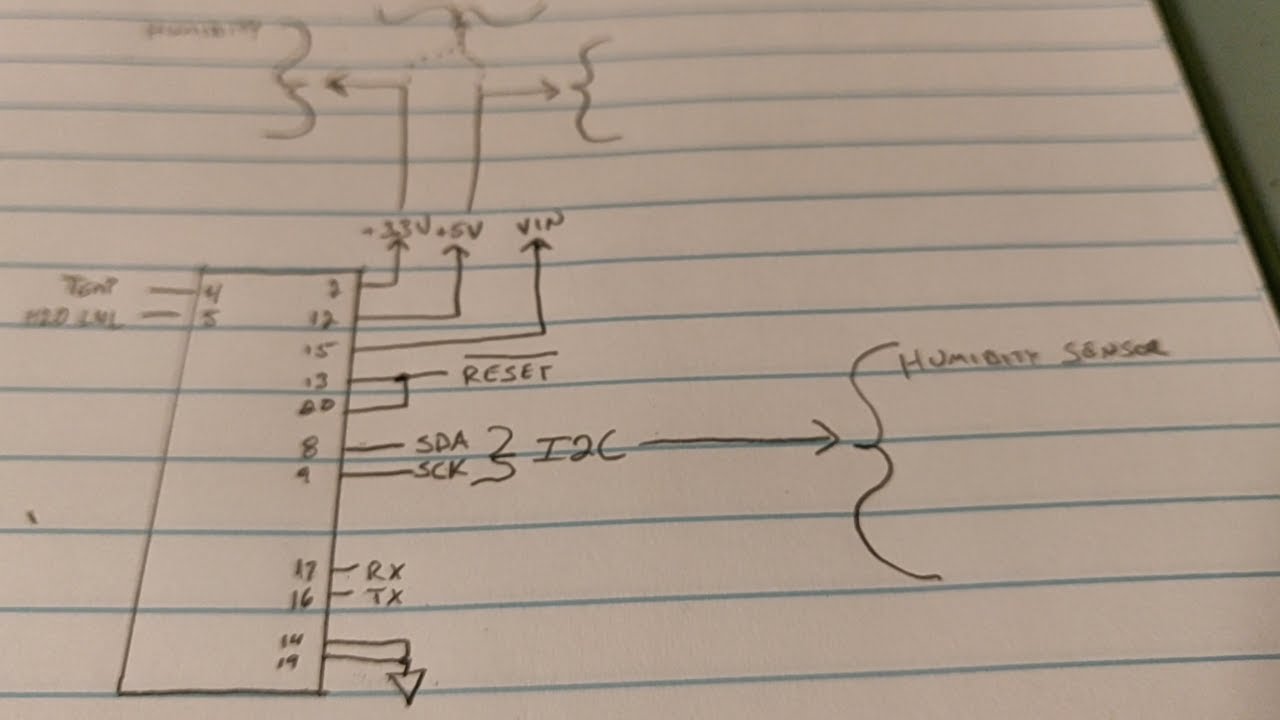 HUMIDITY
+3.3V +5V VIN
TEMP 4 2
H2O LVL 5 12
15
13 RESET
20
HUMIDITY SENSOR
8 SDA I2C
9 SCK
17 RX
16 TX
14
19